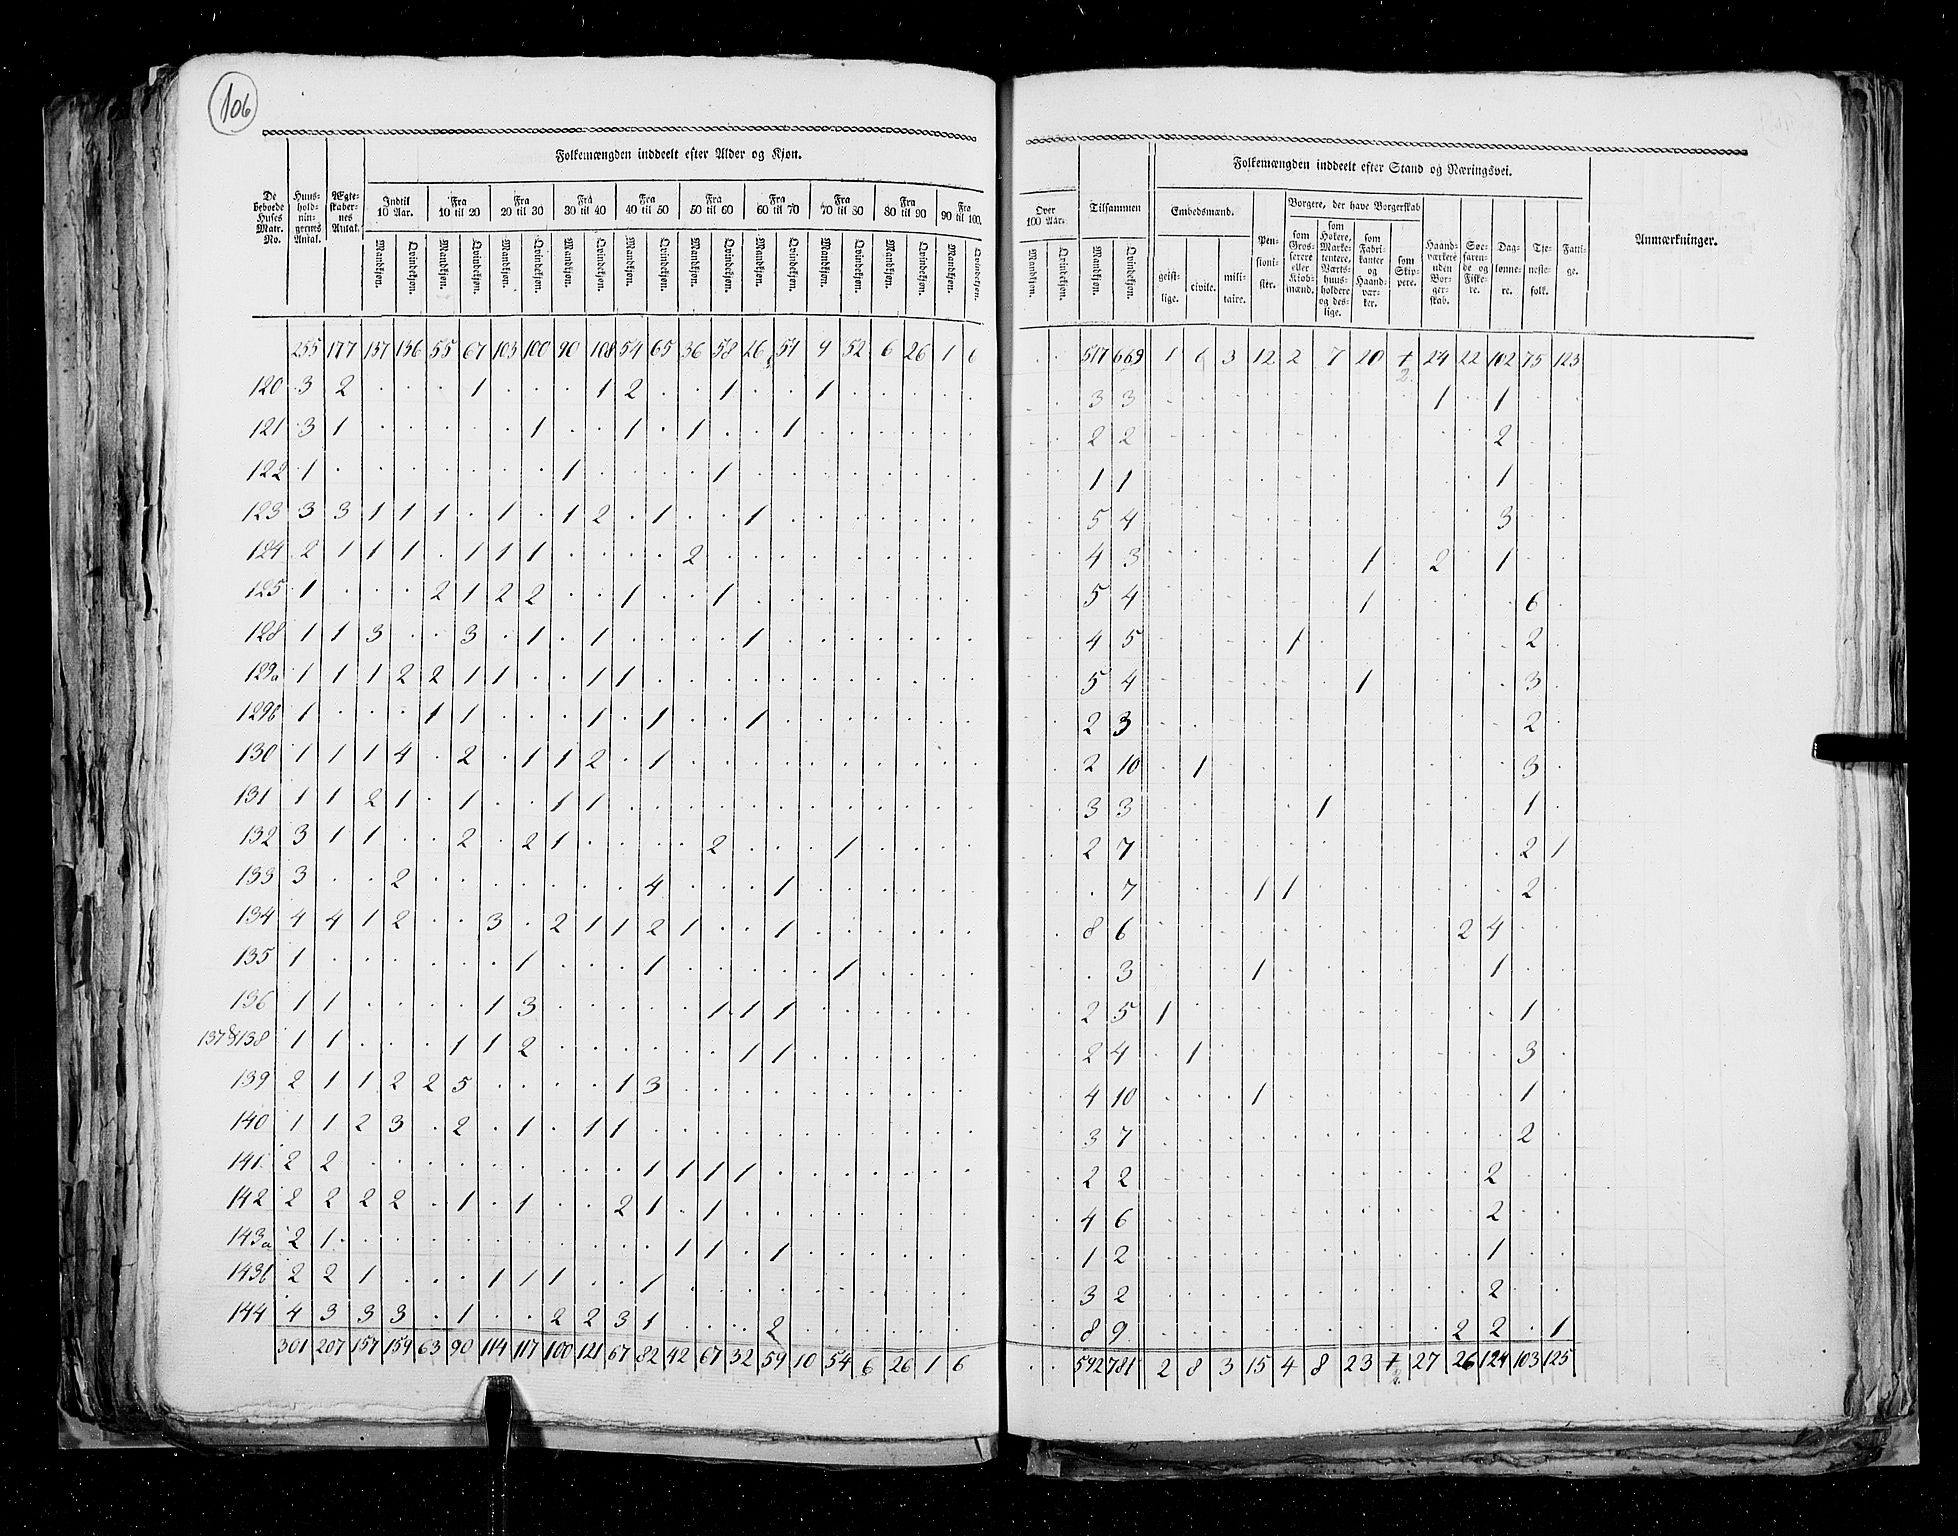 106
Folkemængden inddeelt efter Alder og Kjøn.
De beboede Huses Matr. No. | Huus-hold-nin-gernes Antal. | Ægte-skaber-nes Antal. | Indtil 10 Aar. | Fra 10 til 20 | Fra 20 til 30 | Fra 30 til 40 | Fra 40 til 50 | Fra 50 til 60 | Fra 60 til 70 | Fra 70 til 80 | Fra 80 til 90 | Fra 90 til 100.
Mandkjøn. Qvindekjøn. Mandkjøn. Qvindekjøn. Mandkjøn. Qvindekjøn. Mandkjøn. Qvindekjøn. Mandkjøn. Qvindekjøn. Mandkjøn. Qvindekjøn. Mandkjøn. Qvindekjøn. Mandkjøn. Qvindekjøn. Mandkjøn. Qvindekjøn. Mandkjøn. Qvindekjøn.
255 177 137 136 55 67 103 100 90 108 54 65 36 58 26 51 9 52 6 26 1 6
120 3 2 . . . 1 . . . 1 2 . . 1 . . 1 . . . . .
121 3 1 . . . . . 1 . . 1 . 1 . . 1 . . . . . .
122 1 . . . . . . . 1 . . . . 1 . . . . . . . .
123 3 3 1 1 1 . 1 . 1 2 . 1 . . 1 . . . . . . .
124 2 1 1 1 . 1 1 1 . . . . 2 . . . . . . . . .
125 1 . . . 2 1 2 2 . . 1 . . 1 . . . . . . . .
128 1 1 3 . . 3 . 1 . 1 . . . . 1 . . . . . . .
129a 1 1 1 2 2 1 1 . . 1 1 . . . . . . . . . . .
129b 1 . . . 1 1 . . . 1 . 1 . . 1 . . . . . . .
130 1 1 1 4 . 2 . 1 1 2 . 1 . . . . . . . . . .
131 1 1 2 1 . 1 . . 1 1 . . . . . . . . . . . .
132 3 1 1 . . 2 . 2 1 . . . . 2 . . . 1 . . . .
133 3 . . 2 . . . . . . . 4 . . . 1 . . . . . .
134 4 4 1 2 . . 3 . 2 1 1 2 1 . . 1 . . . . . .
135 1 . . . . . . 1 . . . 1 . . . . . 1 . . . .
136 1 1 . . . . 1 3 . . . . . 1 1 1 . . . . . .
137&138 1 1 . . . 1 1 2 . . . . . . 1 1 . . . . . .
139 2 1 1 2 2 5 . . . . 1 3 . . . . . . . . . .
140 1 1 2 3 . 2 . 1 . 1 1 . . . . . . . . . . .
141 2 2 . . . . . . . . . 1 1 1 1 . . . . . . .
142 2 2 2 2 . 1 . 1 . . 2 1 . 1 . . . . . . . .
143a 2 1 . . . . . . . . . . 1 1 . 1 . . . . . .
143b 2 2 1 . . . 1 1 1 . . 1 . . . . . . . . . .
144 4 3 3 3 . 1 . . 2 2 3 1 . . . 2 . . . . . .
301 207 157 159 63 90 114 117 100 121 67 82 42 67 32 59 10 54 6 26 1 6
Folkemængden inddeelt efter Stand og Næringsvei.
Over 100 Aar. | Tilsammen | Embedsmænd. | Pen-sioni-ster. | Borgere, der have Borgerskab | Haand-værkere uden Bor-ger-skab. | Søe-faren-de og Fiske-re. | Dag-lønne-re. | Tje-neste-folk. | Fatti-ge. | Anmærkninger.
Mandkjøn. Qvindekjøn. Mandkjøn. Qvindekjøn. | geist-lige. | civile. | mili-taire. | som Gros-serere eller Kiøb-mænd. | som Høkere, Marke-tentere, Værts-huus-holdere og des-lige. | som Fabri-kanter og Haand-vær-ker. | som Skip-pere.
. . 517 669 1 6 3 12 2 7 20 + 2 24 22 102 75 123
. . 3 3 . . . . . . . . 1 . 1 . .
. . 2 2 . . . . . . . . . . 2 . .
. . 1 1 . . . . . . . . . . 1 . .
. . 5 4 . . . . . . . . . . 3 . .
. . 4 3 . . . . . . 1 . 2 . 1 . .
. . 5 4 . . . . . . 1 . . . . 6 .
. . 4 5 . . . . 1 . . . . . . 2 .
. . 5 4 . . . . . . 1 . . . . 3 .
. . 2 3 . . . . . . . . . . . 2 .
. . 2 10 . 1 . . . . . . . . . 3 .
. . 3 3 . . . . . 1 . . . . . 1 .
. . 2 7 . . . . . . . . . . . 2 1
. . . 7 . . . 1 1 . . . . . . 2 .
. . 8 6 . . . . . . . . . 2 4 . .
. . . 3 . . . 1 . . . . . . 1 . .
. . 2 5 1 . . . . . . . . . . 1 .
. . 2 4 . 1 . . . . . . . . . 3 .
. . 4 10 . . . 1 . . . . . . . 1 .
. . 3 7 . . . . . . . . . . . 2 .
. . 2 2 . . . . . . . . . . 2 . .
. . 4 6 . . . . . . . . . . 2 . .
. . 1 2 . . . . . . . . . . 1 . .
. . 3 2 . . . . . . . . . . 2 . .
. . 8 9 . . . . . . . . . 2 2 . 1
. . 592 781 2 8 3 15 4 8 23 + 2 27 26 124 103 125